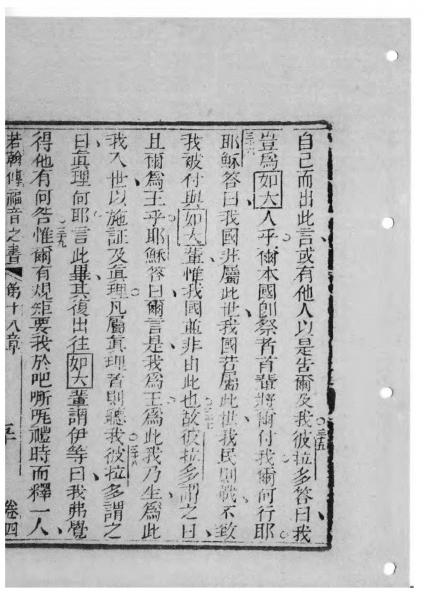 自己而出此言或有他人以是告爾及我彼拉多答曰我
三五
豈爲如大人乎爾本國與祭者首輩將爾付我爾何行耶
三六
耶穌答曰我國非屬此世我國若屬此世我民則戰不致
我被付與如大輩惟我國並非由此也故彼拉多謂之曰
三七
且爾爲王乎耶穌答曰爾言是我爲王爲此我乃生爲此
我入世以施証及眞理凡屬眞理者則聽我彼拉多謂之
三八
曰眞理何耶言此畢其復出往如大輩謂伊等曰我弗覺
得他有何咎惟爾有規矩要我於吧𠵽呢禮時而釋一人
三九
若翰傳福音之書 第十八章 卷四